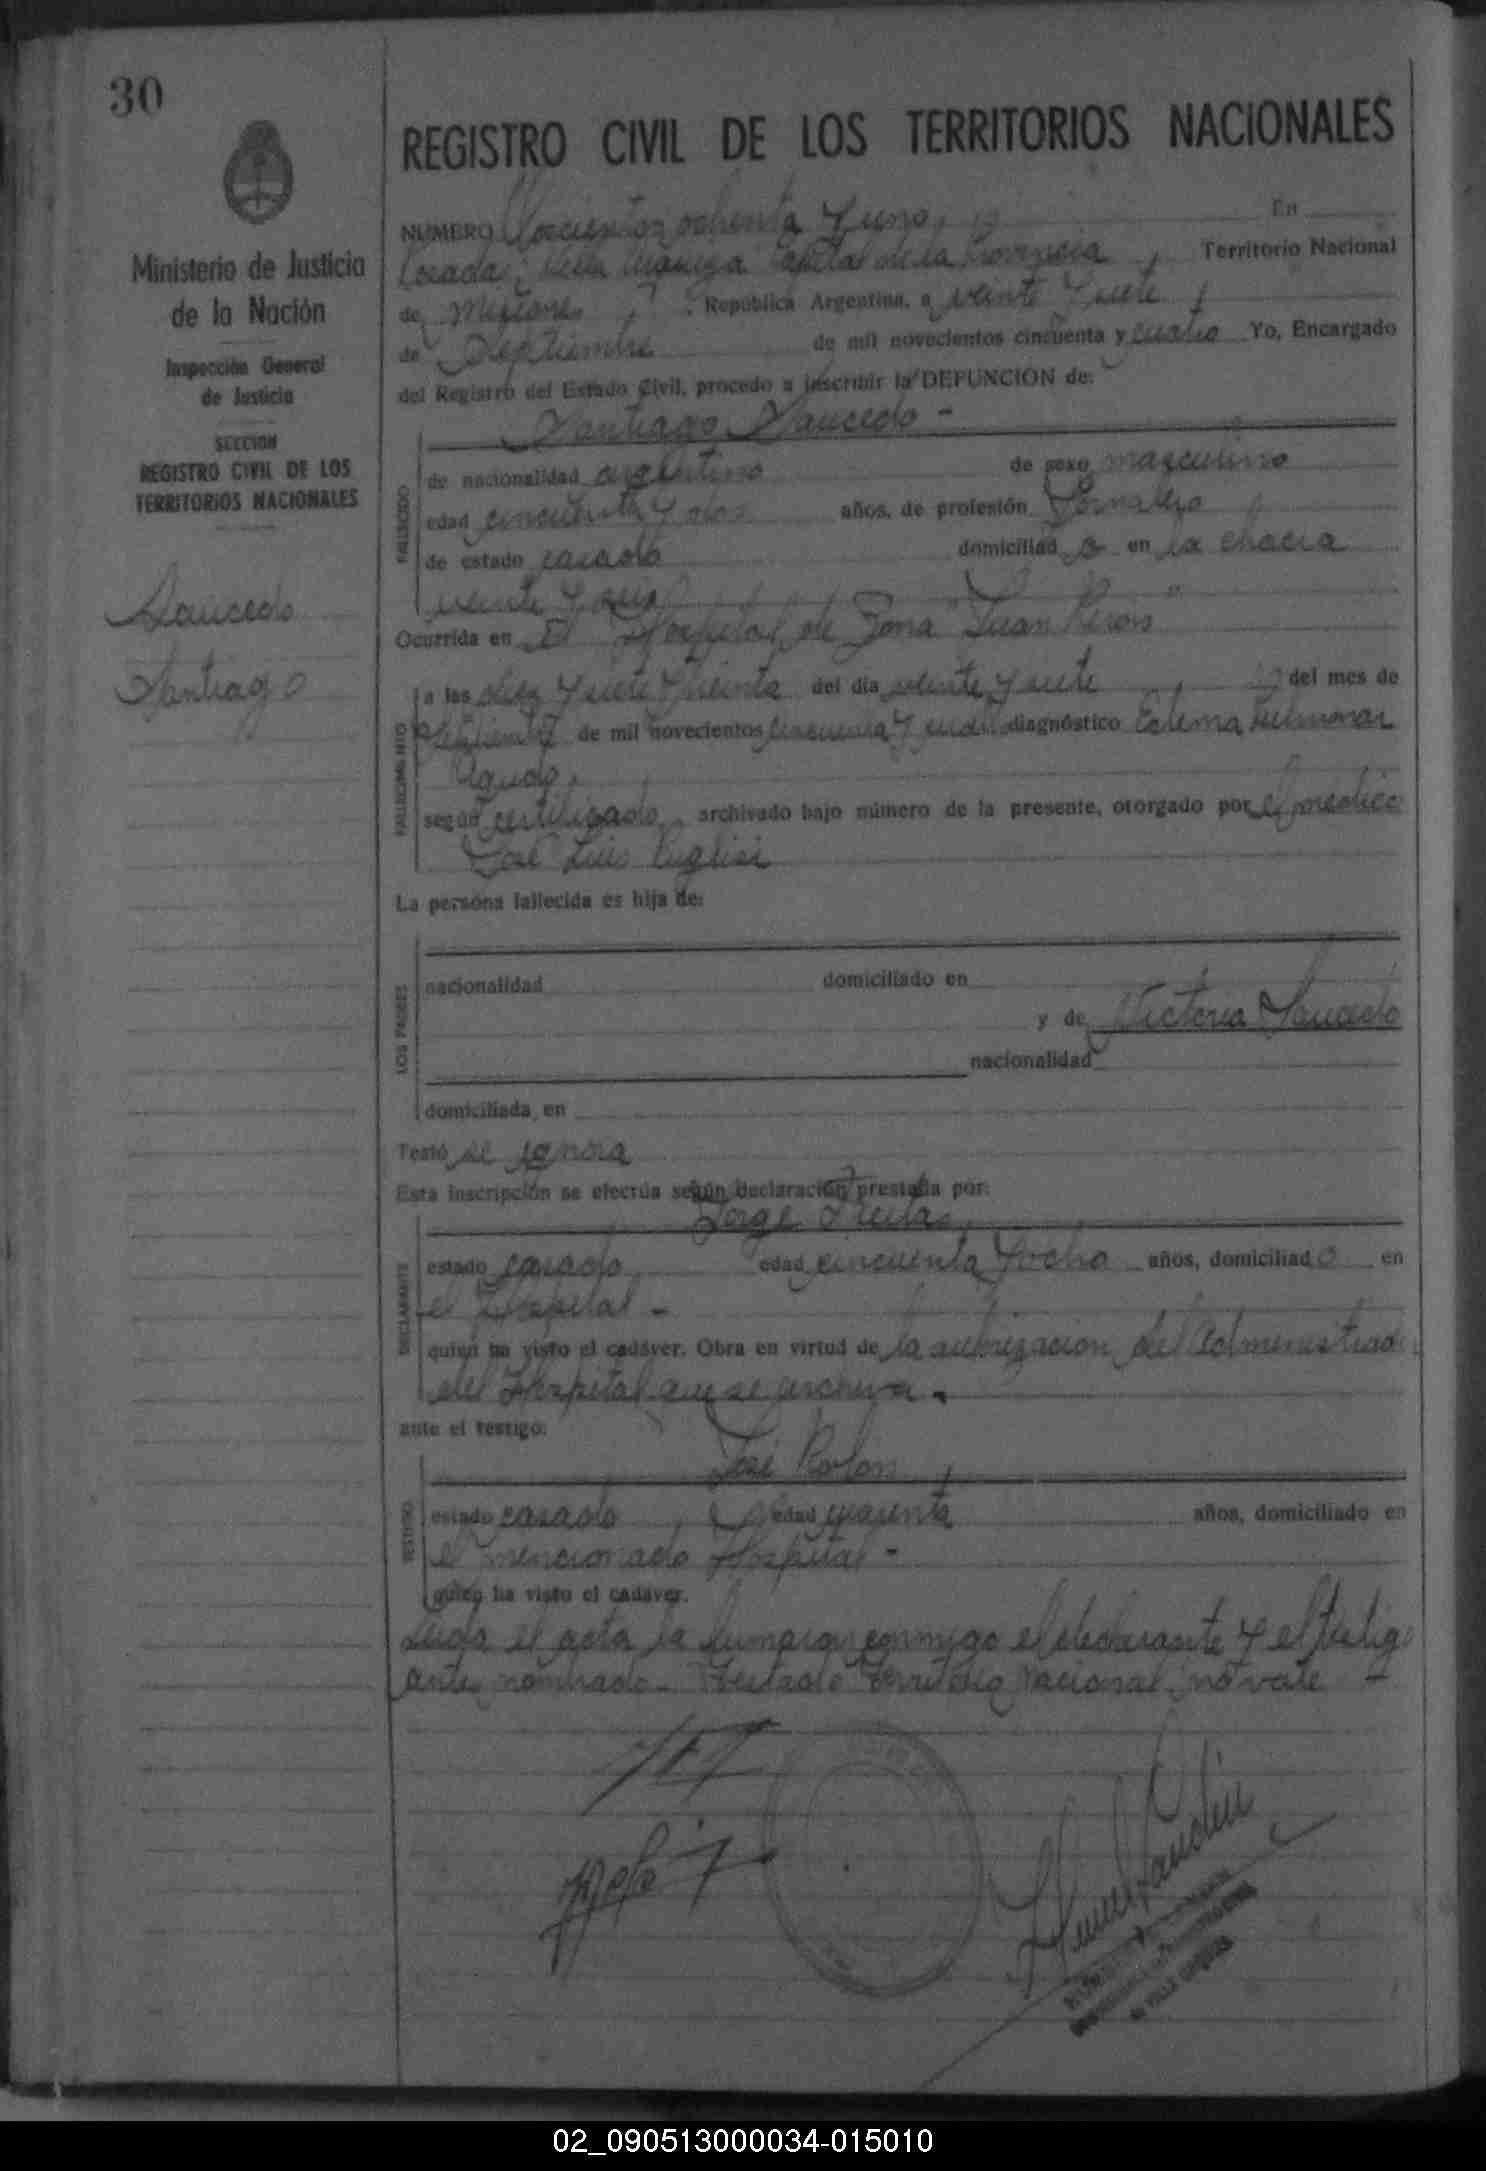 30
REGISTRO CIVIL DE LOS TERRITORIOS NACIONALES
Ministerio de Justicia
de la Nación
Inspección General
de Justicia
SECCION
REGISTRO CIVIL DE LOS
TERRITORIOS NACIONALES
Saucedo
Santiago
NUMERO Doscientos ochenta y uno, En
Posadas, Capital de la Provincia, Territorio Nacional
de Misiones, República Argentina, a veinte y siete
de Septiembre de mil novecientos cincuenta y cuatro Yo, Encargado
del Registro del Estado Civil, procedo a inscribir la DEFUNCION de:
Santiago Saucedo -
FALLECIDO
de nacionalidad argentino de sexo masculino
edad cincuenta y dos años, de profesión Jornalero
de estado casado domiciliad o en la chacra
veinte y seis
Ocurrida en El Hospital de Zona "Juan Perón"
FALLECIMIENTO
a las diez y siete y treinta del día veinte y siete del mes de
Septiembre de mil novecientos cincuenta y cuatro diagnóstico Edema Pulmonar
Agudo,
según certificado archivado bajo número de la presente, otorgado por el médico
José Luis Puglisi
La persona fallecida es hija de:
LOS PADRES
nacionalidad domiciliado en
y de Victoria Saucedo
nacionalidad
domiciliada en
Testó se ignora
Esta inscripción se efectúa según declaración prestada por:
Jorge Freitas
DECLARANTE
estado casado edad cincuenta y ocho años, domiciliad o en
el Hospital -
quien ha visto el cadáver. Obra en virtud de la autorización del Administrador
del Hospital que se archiva.
ante el testigo:
José Rolon
TESTIGO
estado casado edad cuarenta años, domiciliado en
el mencionado Hospital -
quien ha visto el cadáver.
Leída el acta la firmaron conmigo el declarante y el testigo
antes nombrado - Testado Territorio Nacional: no vale -
02_090513000034-015010